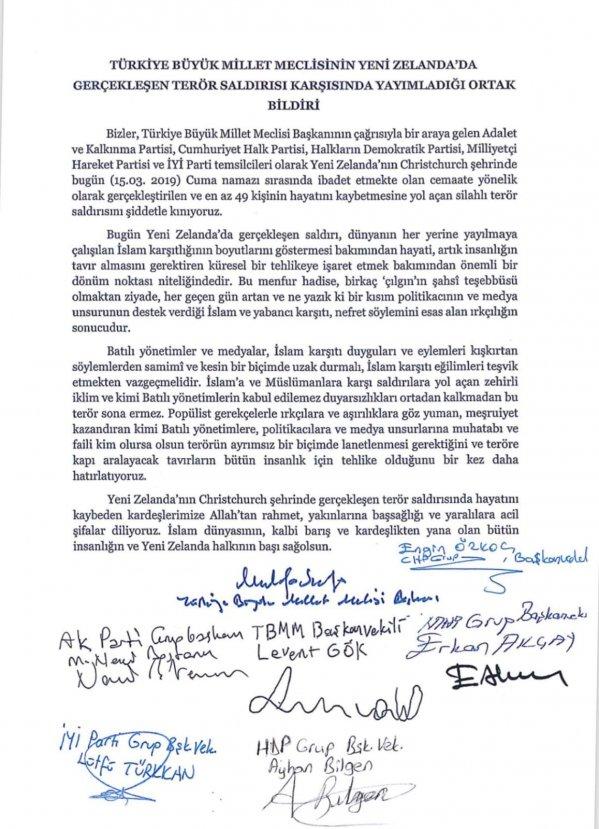 TÜRKİYE BÜYÜK MİLLET MECLİSİNİN YENİ ZELANDA’DA
GERÇEKLEŞEN TERÖR SALDIRISI KARŞISINDA YAYIMLADIĞI ORTAK
BİLDİRİ
Bizler, Türkiye Büyük Millet Meclisi Başkanının çağrısıyla bir araya gelen Adalet
ve Kalkınma Partisi, Cumhuriyet Halk Partisi, Halkların Demokratik Partisi, Milliyetçi
Hareket Partisi ve İYİ Parti temsilcileri olarak Yeni Zelanda’nın Christchurch şehrinde
bugün (15.03. 2019) Cuma namazı sırasında ibadet etmekte olan cemaate yönelik
olarak gerçekleştirilen ve en az 49 kişinin hayatını kaybetmesine yol açan silahlı terör
saldırısını şiddetle kınıyoruz.
Bugün Yeni Zelanda’da gerçekleşen saldırı, dünyanın her yerine yayılmaya
çalışılan İslam karşıtlığının boyutlarını göstermesi bakımından hayati, artık insanlığın
tavır almasını gerektiren küresel bir tehlikeye işaret etmek bakımından önemli bir
dönüm noktası niteliğindedir. Bu menfur hadise, birkaç ‘çılgın’ın şahsî teşebbüsü
olmaktan ziyade, her geçen gün artan ve ne yazık ki bir kısım politikacının ve medya
unsurunun destek verdiği İslam ve yabancı karşıtı, nefret söylemini esas alan ırkçılığın
sonucudur.
Batılı yönetimler ve medyalar, İslam karşıtı duyguları ve eylemleri kışkırtan
söylemlerden samimî ve kesin bir biçimde uzak durmalı, İslam karşıtı eğilimleri teşvik
etmekten vazgeçmelidir. İslam’a ve Müslümanlara karşı saldırılara yol açan zehirli
iklim ve kimi Batılı yönetimlerin kabul edilemez duyarsızlıkları ortadan kalkmadan bu
terör sona ermez. Popülist gerekçelerle ırkçılara ve aşırılıklara göz yuman, meşruiyet
kazandıran kimi Batılı yönetimlere, politikacılara ve medya unsurlarına muhatabı ve
faili kim olursa olsun terörün ayrımsız bir biçimde lanetlenmesi gerektiğini ve teröre
kapı aralayacak tavırların bütün insanlık için tehlike olduğunu bir kez daha
hatırlatıyoruz.
Yeni Zelanda’nın Christchurch şehrinde gerçekleşen terör saldırısında hayatını
kaybeden kardeşlerimize Allah’tan rahmet, yakınlarına başsağlığı ve yaralılara acil
şifalar diliyoruz. İslam dünyasının, kalbi barış ve kardeşlikten yana olan bütün
insanlığın ve Yeni Zelanda halkının başı sağolsun.
Engin ÖZKOÇ
CHP Grup Başkanvekil
Türkiye Büyük Millet Meclisi Başkanı
AK Parti Grupbaşkanı
TBMM Başkanvekili
Levent GÖK
MHP Grup Başkanvekili
Erkan AKÇAY
İYİ Parti Grup Bşk. Vek.
Lütfü TÜRKKAN
HDP Grup Bşk. Vek.
Ayhan Bilgen
A Bilgen